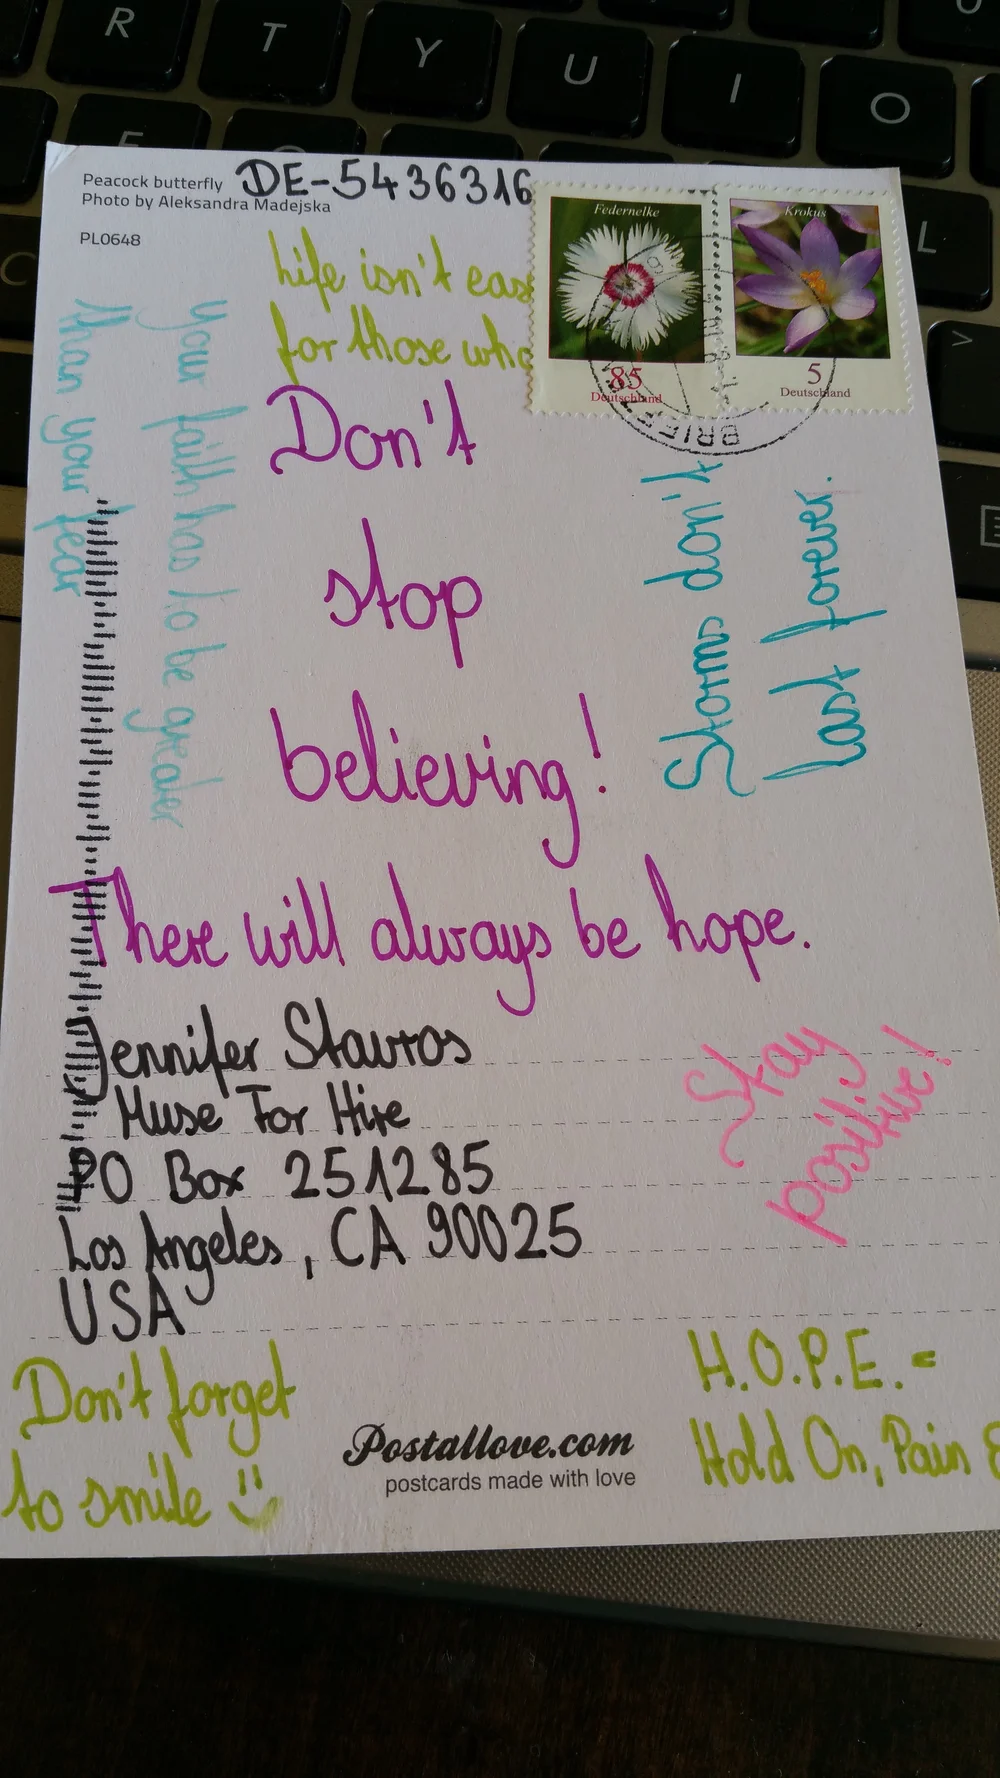 R T Y U I O
Peacock butterfly
Photo by Aleksandra Madejska
PL0648
DE-5436316
Federnelke
85
Deutschland
Krokus
5
Deutschland
BRIEF
L
life isn't eas
for those who
your faith has to be greater
than your fear
Don't
stop
believing!
Storms don't
last forever.
There will always be hope.
Jennifer Stavros
Muse For Hire
PO Box 251285
Los Angeles, CA 90025
USA
Stay
positive!
Don't forget
to smile
H.O.P.E. =
Hold On, Pain E
Postallove.com
postcards made with love